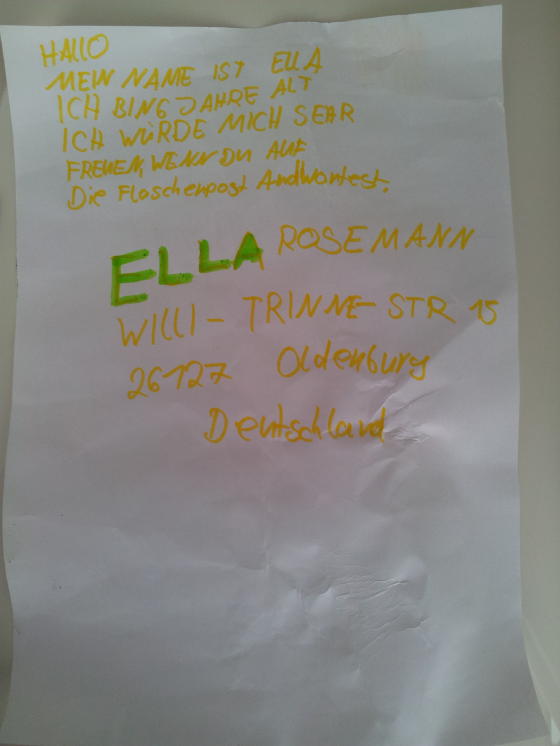 HALLO
MEIN NAME IST ELLA
ICH BIN 6 JAHRE ALT
ICH WÜRDE MICH SEHR
FREUEN, WENN DU AUF
Die Flaschenpost Andwortest.
ELLA ROSEMANN
WILLI-TRINNE-STR 15
26127 Oldenburg
Deutschland